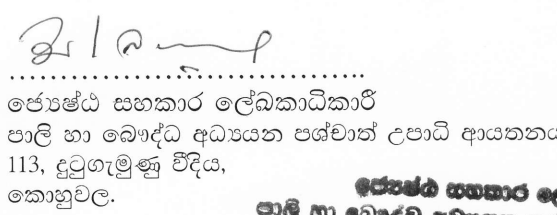 ජ්‍යෙෂ්ඨ සහකාර ලේඛකාධිකාරී
පාලි හා බෞද්ධ අධ්‍යයන පශ්චාත් උපාධි ආයතනය
113, දුටුගැමුණු වීදිය,
කොහුවල.
ජ්‍යෙෂ්ඨ සහකාර
පාලි හා බෞද්ධ